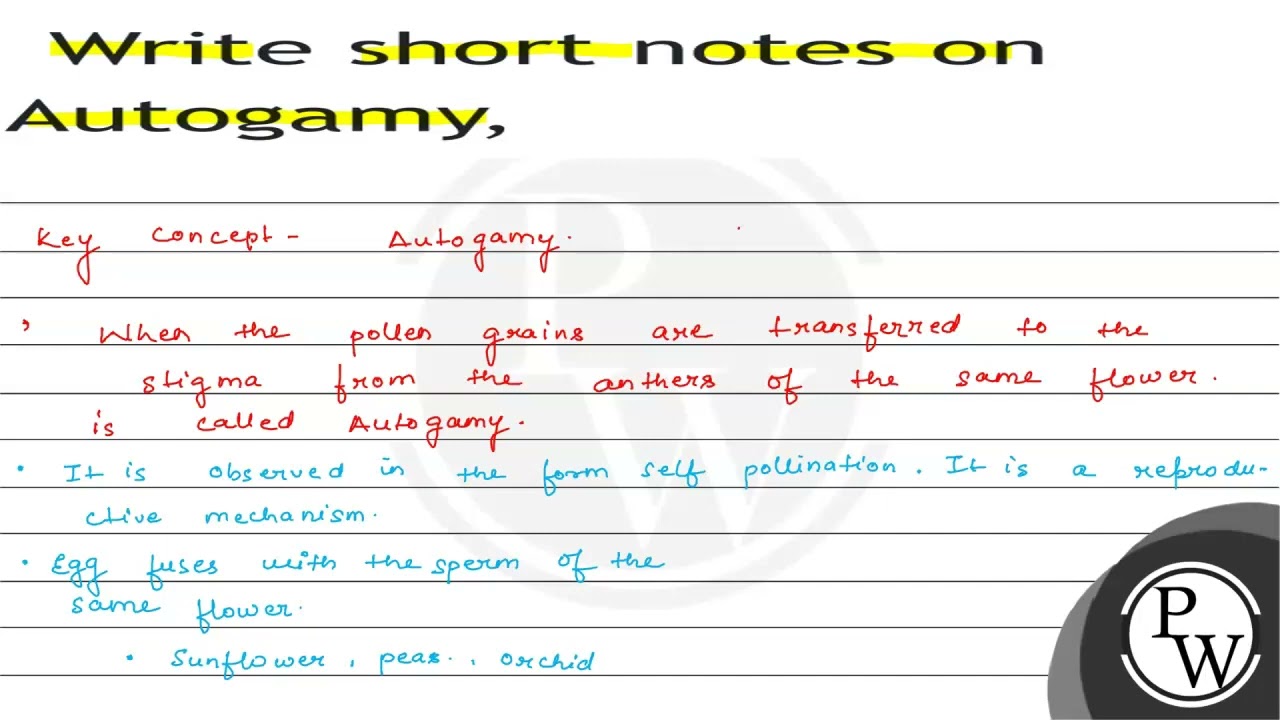 Write short notes on
Autogamy,
Key concept - Autogamy.
When the pollen grains are transferred to the
stigma from the anthers of the same flower.
is called Autogamy.
• It is observed in the form self pollination. It is a reprodu-
ctive mechanism.
• Egg fuses with the sperm of the
same flower.
• Sunflower, peas., orchid
P
W